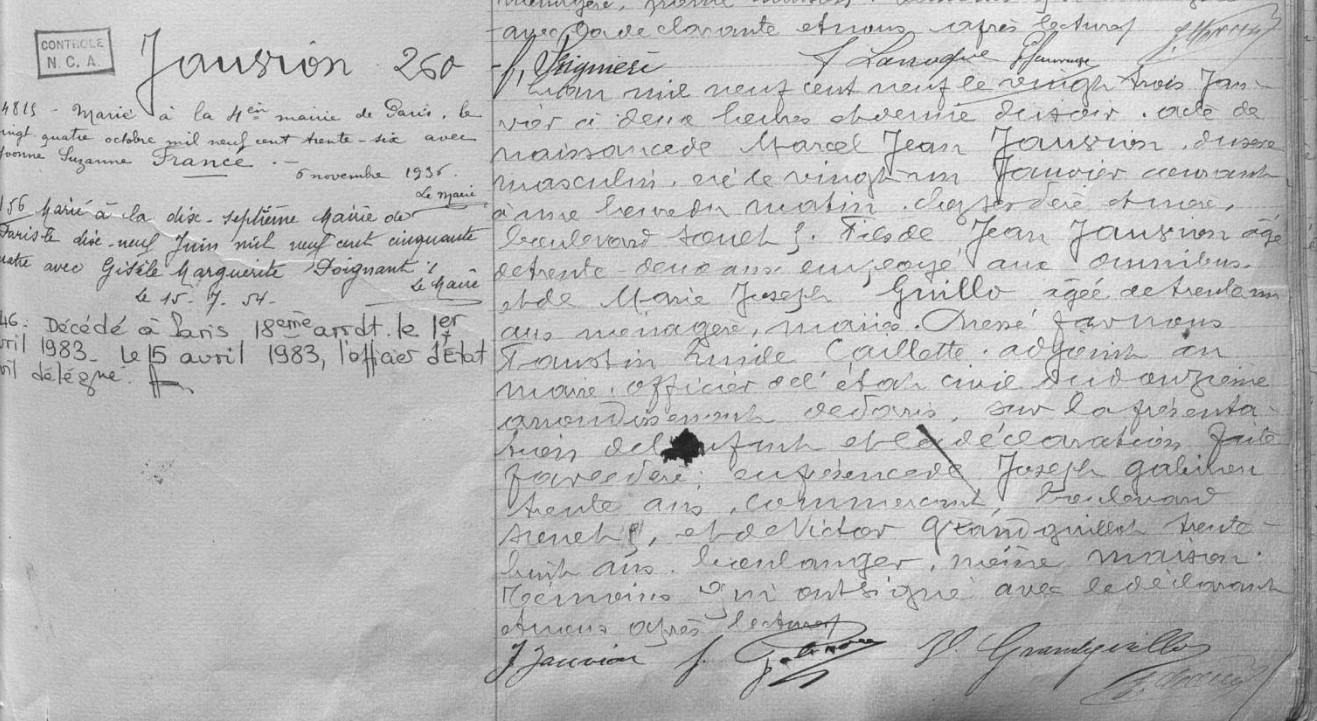 CONTROLE
N. C. A.
Jausion 260
4815 - Marié à la 4em mairie de Paris, le
vingt quatre octobre mil neuf cent trente-six avec
Yvonne Suzanne France. -
6 novembre 1936.
Le Maire
156 Marié à la dix-septième Mairie de
Paris le dix-neuf Juin mil neuf cent cinquante
quatre avec Gisèle Marguerite Doignant ./.
Le Maire
Le 15-7.54-
46. Décédé à Paris 18eme arrdt. le 1er
avril 1983_ Le 15 avril 1983, l'officier d'Etat
civil délégué.
ménagère, même maison.
avec la déclarante et nous après lecture
L'an mil neuf cent neuf le vingt trois Jan-
vier à deux heures et demie du soir. acte de
naissance de Marcel Jean Jausion, du sexe
masculin, né le vingt un Janvier courant
à une heure du matin. chez ses père et mère,
boulevard Soult 5. Fils de Jean Jausion âgé
de trente-deux ans employé aux omnibus.
et de Marie Joseph Guillo agée de trente un
ans ménagère, mariés. Dressé par nous
Faustin Emile Caillette. adjoint au
maire. officier de l'état civil du douzième
arrondissement de Paris, sur la présenta-
tion de l'enfant et la déclaration faite
par le père; en présence de Joseph
trente ans, commerçant, boulevard
Soult 5, et de Victor Grandguillot trente-
huit ans. boulanger, même maison.
Témoins qui ont signé avec le déclarant
et nous après lecture
J Jausion J. V. Grandguillot